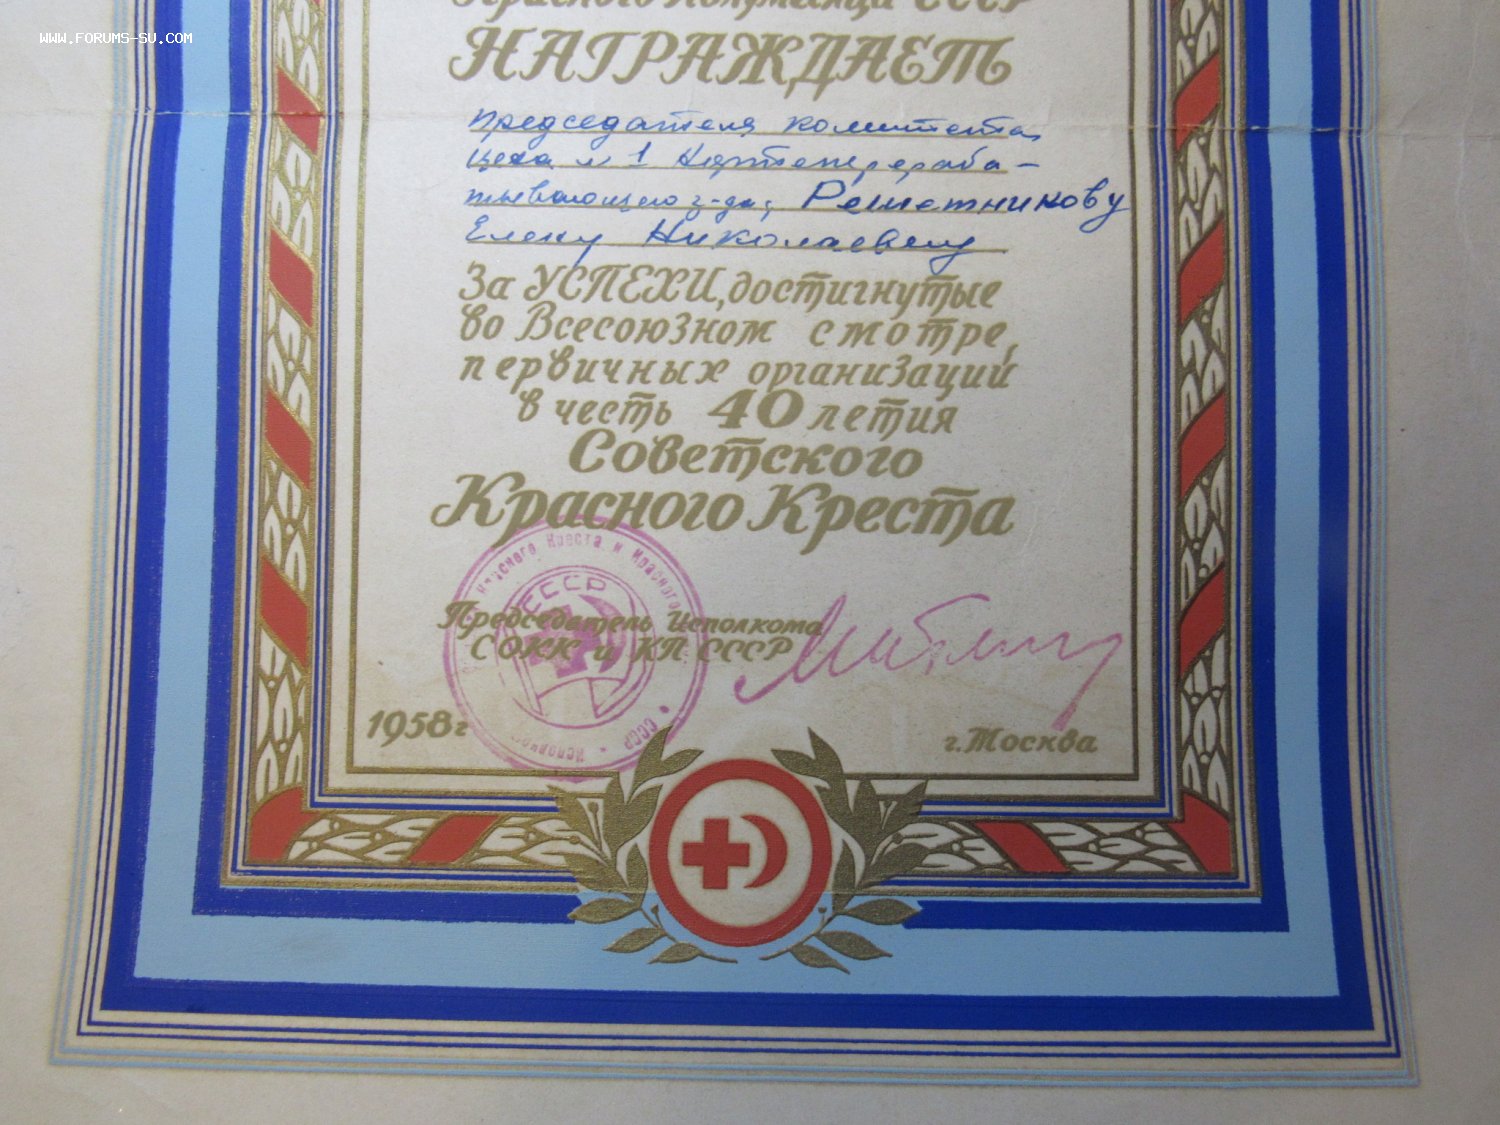 WWW.FORUMS-SU.COM
Красного Полумесяца СССР
НАГРАЖДАЕТ
Председателя комитета
цеха № 1 Нефтеперераба-
тывающего з-да,
Решетникову
Елену Николаевну
За УСПЕХИ, достигнутые
во Всесоюзном смотре,
первичных организаций
в честь 40 летия
Советского
Красного Креста
Красного Креста и Красного
СССР
Председатель Исполкома
СОКК и КП СССР
СССР
1958 г
г. Москва